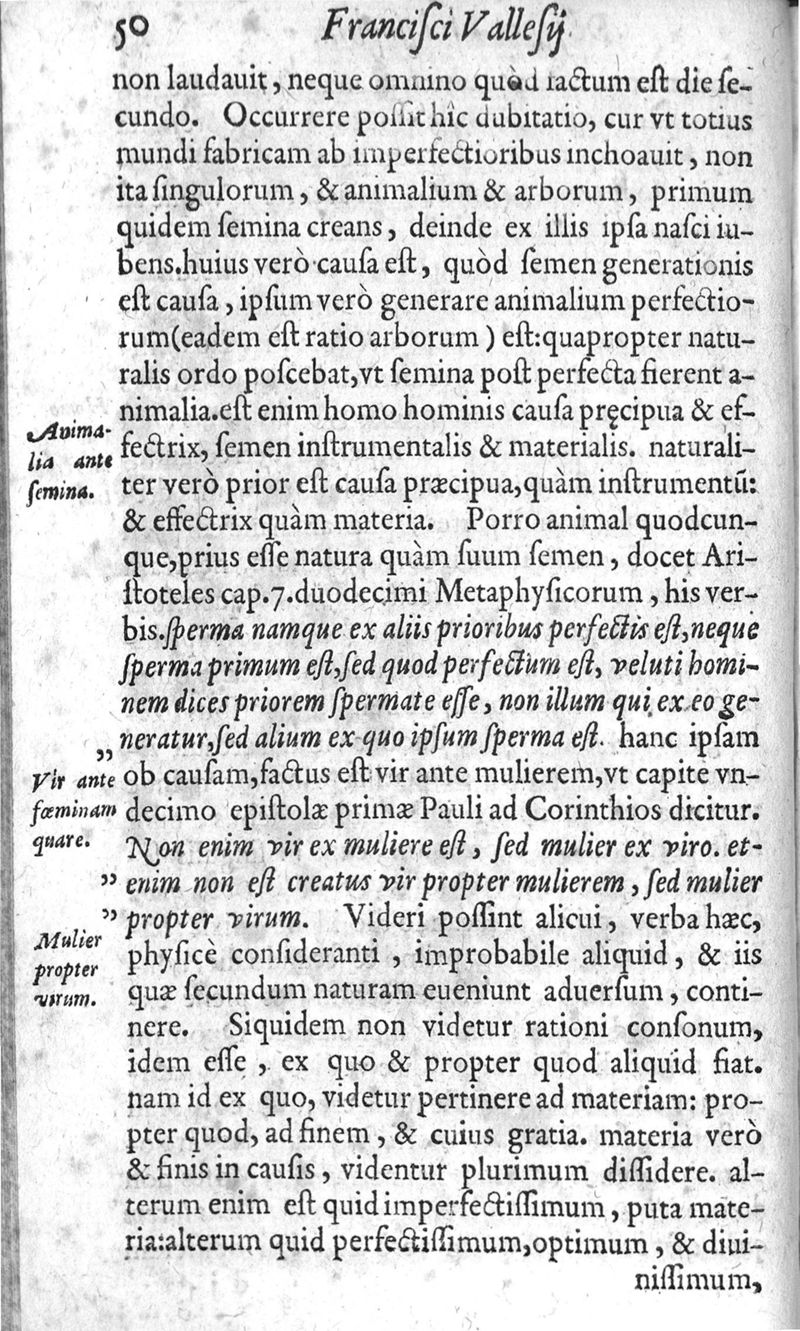 50 Franciſci Valleſij
non laudauit, neque omnino quòd factum eſt die ſe-
cundo. Occurrere poſſit hîc dubitatio, cur vt totius
mundi fabricam ab imperfectioribus inchoauit, non
ita ſingulorum, & animalium & arborum, primum
quidem ſemina creans, deinde ex illis ipſa naſci iu-
bens.huius verò cauſa eſt, quòd ſemen generationis
eſt cauſa, ipſum verò generare animalium perfectio-
rum(eadem eſt ratio arborum) eſt:quapropter natu-
ralis ordo poſcebat,vt ſemina poſt perfecta fierent a-
nimalia.eſt enim homo hominis cauſa pręcipua & ef-
Anima-
lia ante
ſemina.
fectrix, ſemen inſtrumentalis & materialis. naturali-
ter verò prior eſt cauſa præcipua,quàm inſtrumentũ:
& effectrix quàm materia. Porro animal quodcun-
que,prius eſſe natura quàm ſuum ſemen, docet Ari-
ſtoteles cap.7.duodecimi Metaphyſicorum, his ver-
bis.ſperma namque ex aliis prioribus perfectis eſt,neque
ſperma primum eſt,ſed quod perfectum eſt, veluti homi-
nem dices priorem ſpermate eſſe, non illum qui ex eo ge-
„ neratur,ſed alium ex quo ipſum ſperma eſt. hanc ipſam
Vir ante
fœminam
quare.
ob cauſam,factus eſt vir ante mulierem,vt capite vn-
decimo epiſtolæ primæ Pauli ad Corinthios dicitur.
Non enim vir ex muliere eſt, ſed mulier ex viro. et-
” enim non eſt creatus vir propter mulierem, ſed mulier
” propter virum. Videri poſſint alicui, verba hæc,
Mulier
propter
virum.
phyſicè conſideranti, improbabile aliquid, & iis
quæ ſecundum naturam eueniunt aduerſum, conti-
nere. Siquidem non videtur rationi conſonum,
idem eſſe, ex quo & propter quod aliquid fiat.
nam id ex quo, videtur pertinere ad materiam: pro-
pter quod, ad finem, & cuius gratia. materia verò
& finis in cauſis, videntur plurimum diſſidere. al-
terum enim eſt quid imperfectiſſimum, puta mate-
ria:alterum quid perfectiſſimum,optimum, & diui-
niſſimum,